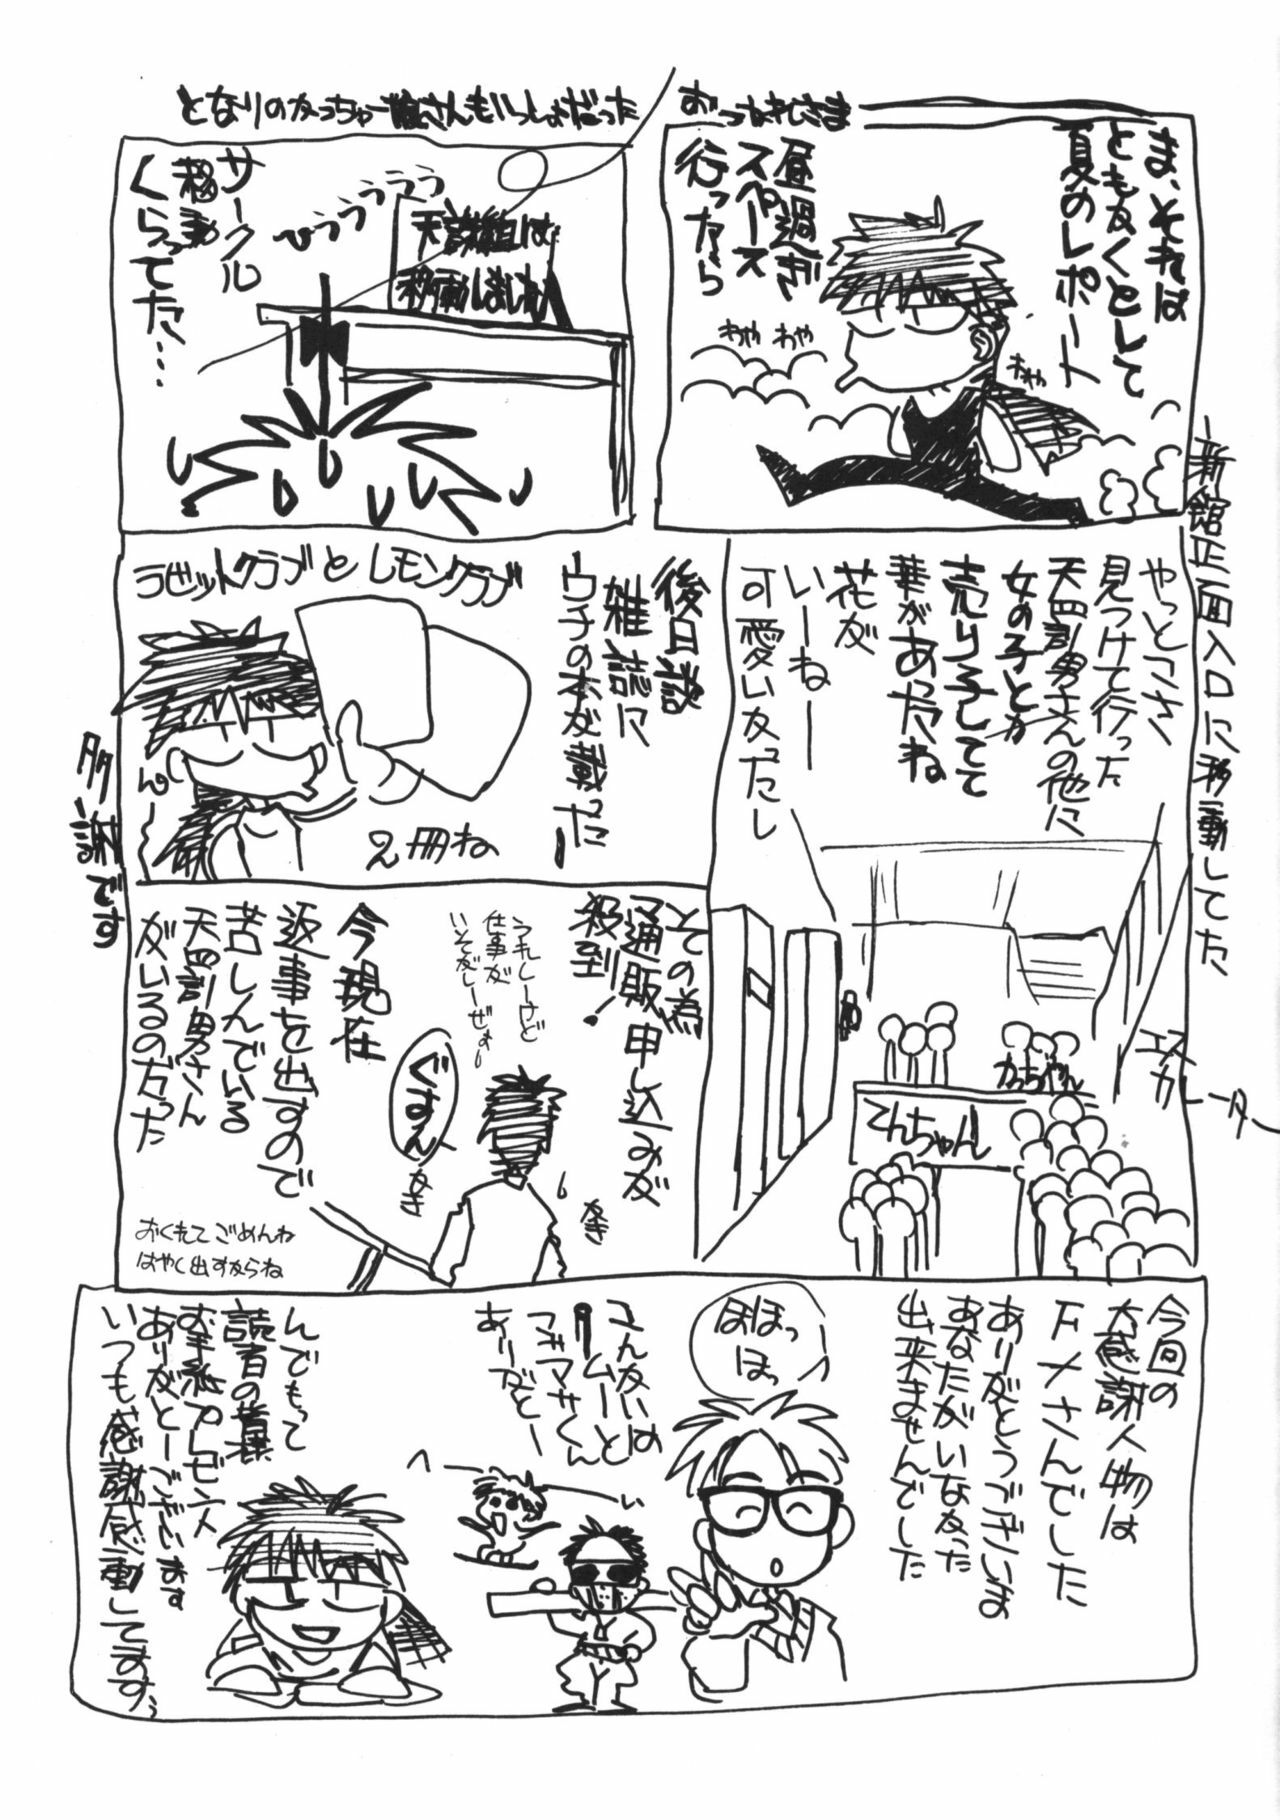 ま、それは
ともかくとして
夏のレポート
昼過ぎ
スペース
行ったら
わや わや
わや
おつかれさま
となりのかっちゃー
さんもいっしょだった
ひゅうぅぅぅ
天誅組は
移動しました
サークル
移動
くらってた…
新館正面入口に移動してた
やっとこさ
見つけて行った
天誅男さんの他に
女の子とか
売り子してて
華があったね
花が
いーねー
可愛いかったし
エスカレーター
かっちゃん
てんちゃん
後日談
雑誌に
ウチの本が載った
ラビットクラブとレモンクラブ
2冊ね
ん〜
多謝です
その為
通販申し込みが
殺到!
うれしーけど
仕事が
いそがしーぜぇ
ぐすん
今現在
返事を出すので
苦しんでいる
天誅男さん
がいるのだった
おくれてごめんね
はやく出すからね
今回の
大感謝人物は
下〆さんでした
ありがとうございます
あなたがいなかったら
出来ませんでした
ほほっ
ほっ
マサくん
ありがとー
んでもって
読者の皆様
お手紙プレゼント
ありがとーございます
いつも感謝感動してます